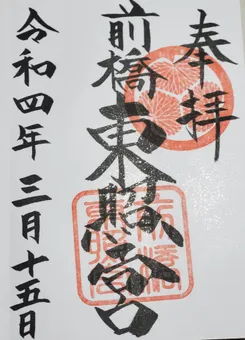 奉拝
前橋東照宮
令和四年三月十五日
前橋東照宮